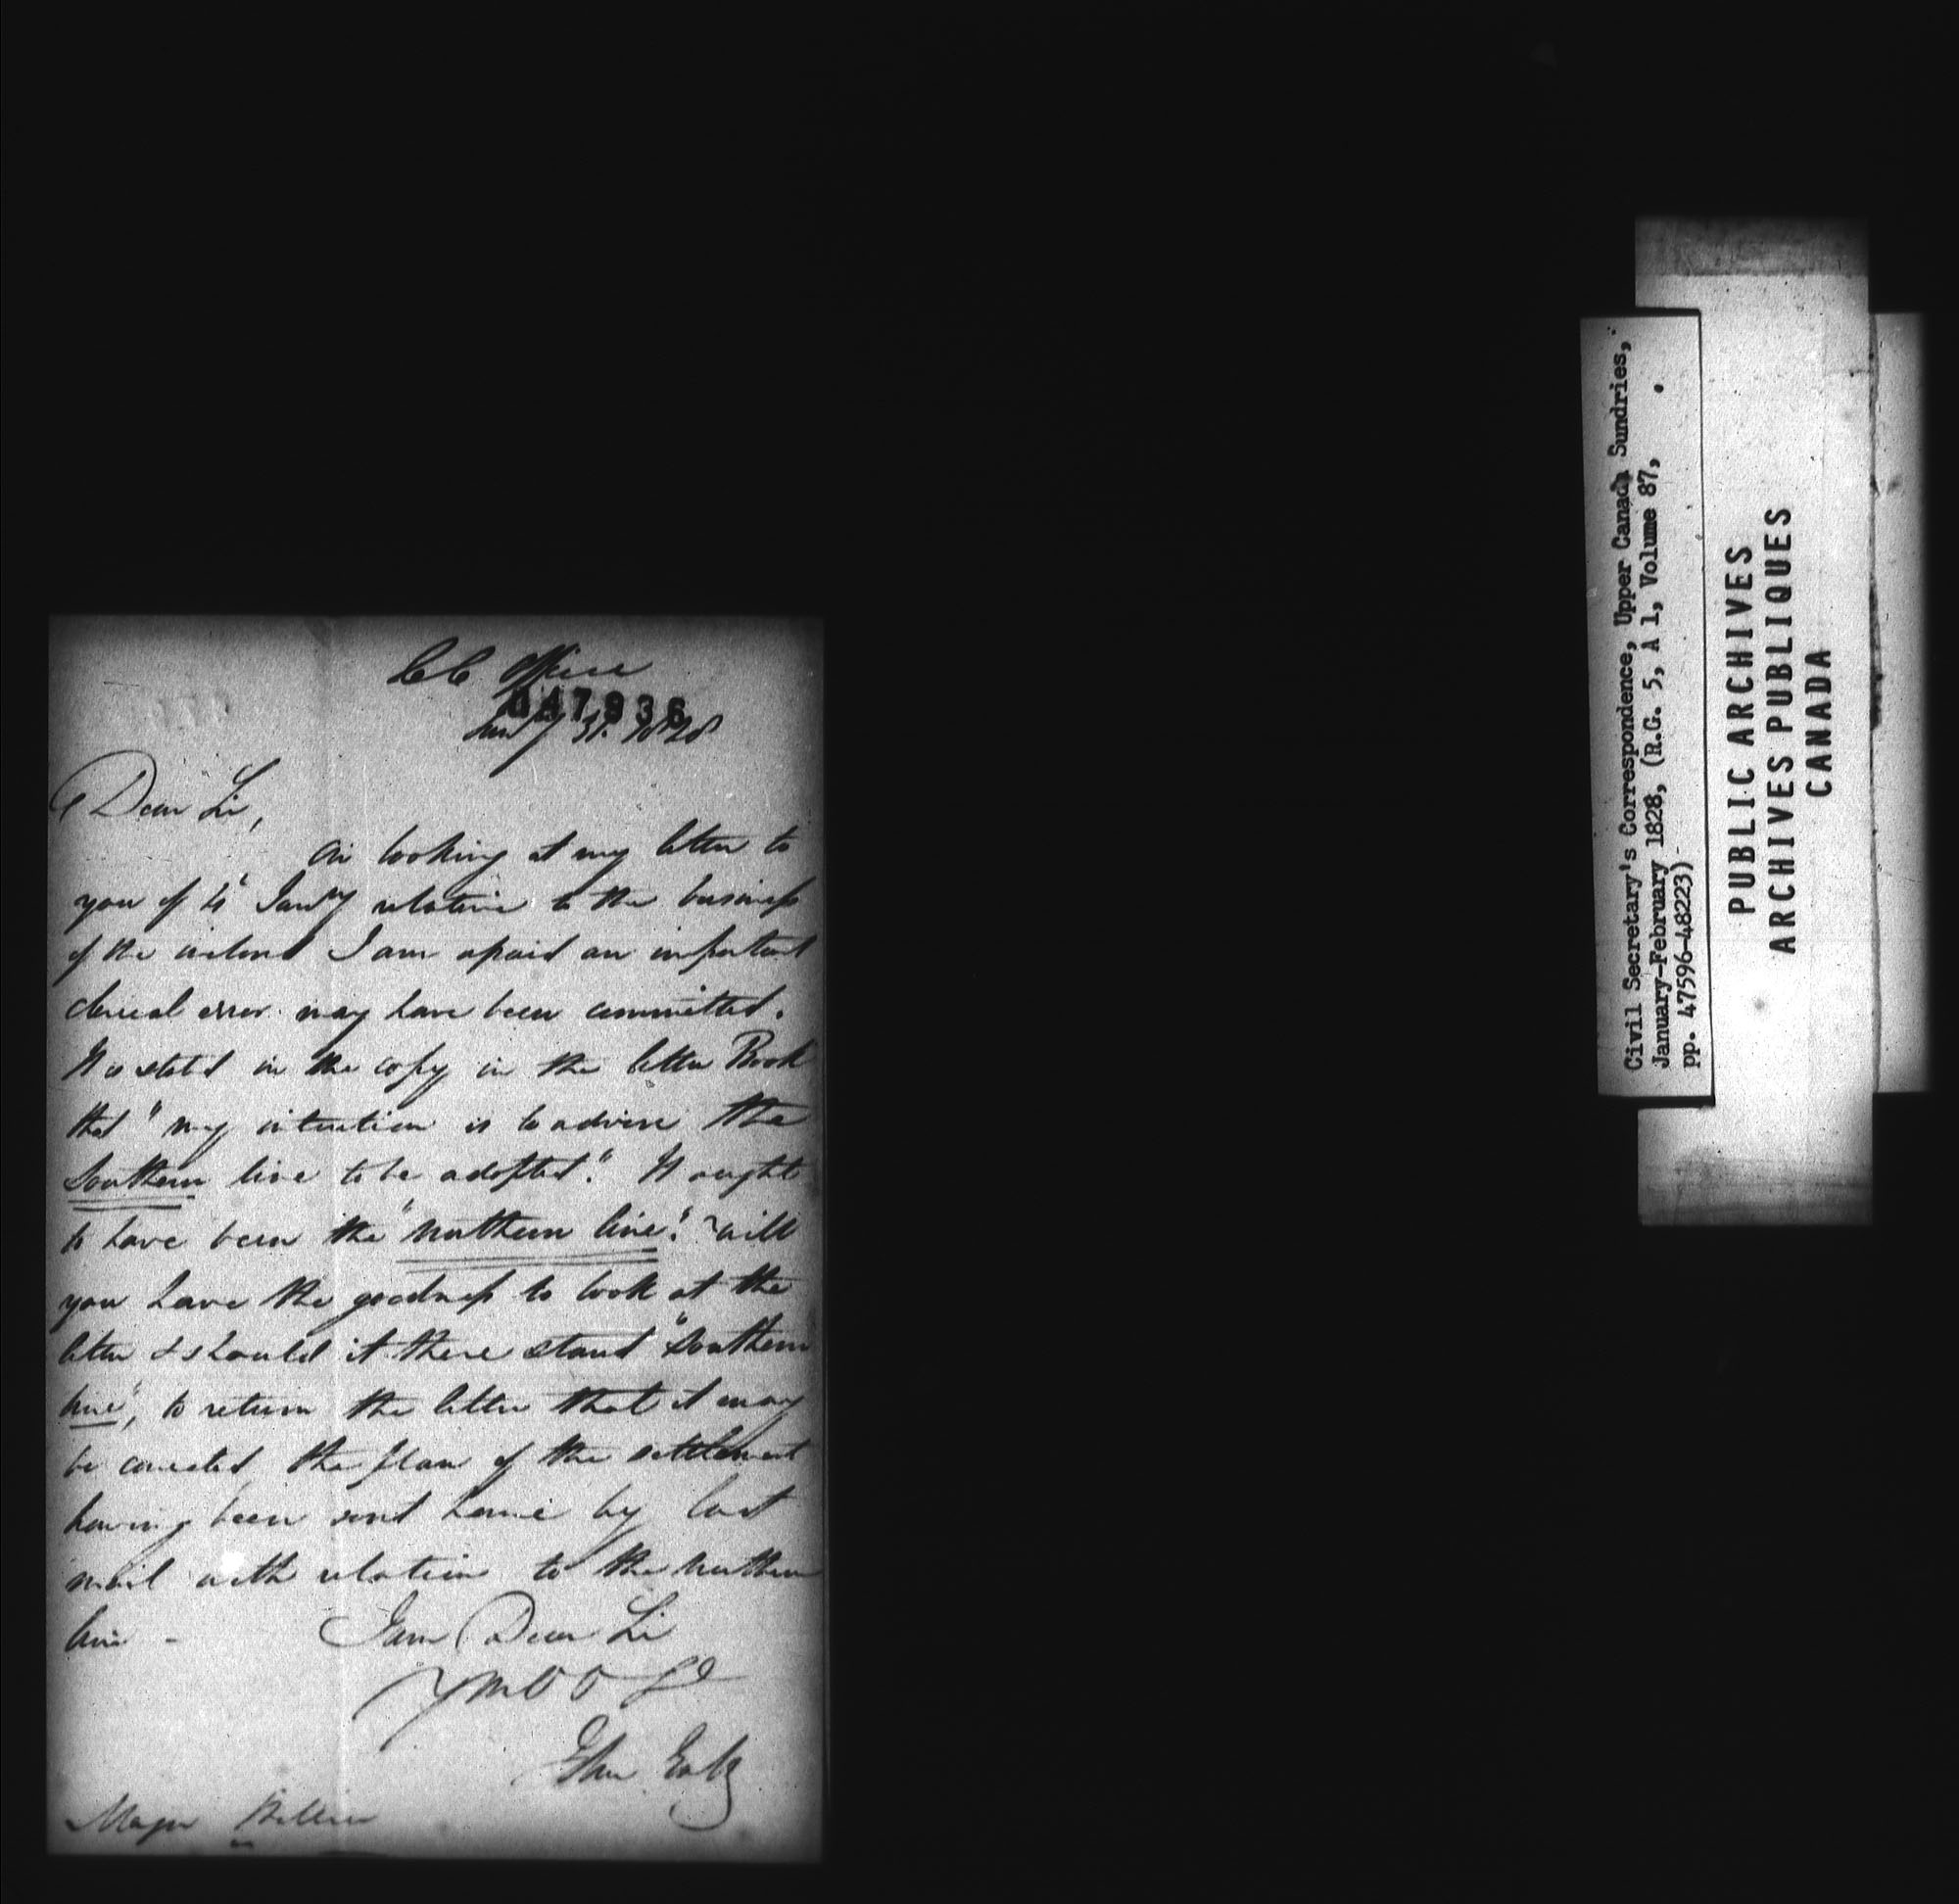 C C Office
047936
Jany 31. 1828
Dear Sir,
On looking at my letter to
you of 4th Jany relative to the business
of the I am afraid an important
clerical error may have been committed.
It is stated in the copy in the letter Book
that "my intention is to advise the
Southern line to be adopted." It ought
to have been the "northern line." Will
you have the goodness to look at the
letter & should it there stand "Southern
line", to return the letter that it may
be corrected, the plan of the settlement
having been sent home by last
mail with relation to the northern
line -
I am Dear Sir
John Galt
Major Hillier
Civil Secretary's Correspondence, Upper Canada Sundries,
January-February 1828, (R.G. 5, A 1, Volume 87,
pp. 47596-48223)
PUBLIC ARCHIVES
ARCHIVES PUBLIQUES
CANADA